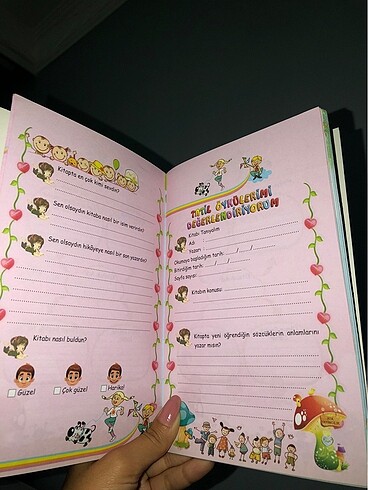 Kitapta en çok kimi sevdin?
Sen olsaydın kitaba nasıl bir isim verirdin?
Sen olsaydın hikâyeye nasıl bir son yazardın?
Kitabı nasıl buldun?
Güzel
Çok güzel
Harika!
TATİL ÖYKÜLERİMİ
DEĞERLENDİRİYORUM
Kitabı Tanıyalım
Adı
Yazarı
Okumaya başladığım tarih:....../....../......
Bitirdiğim tarih:....../....../......
Sayfa sayısı:
Kitabın konusu:
Kitapta yeni öğrendiğin sözcüklerin anlamlarını
yazar mısın?